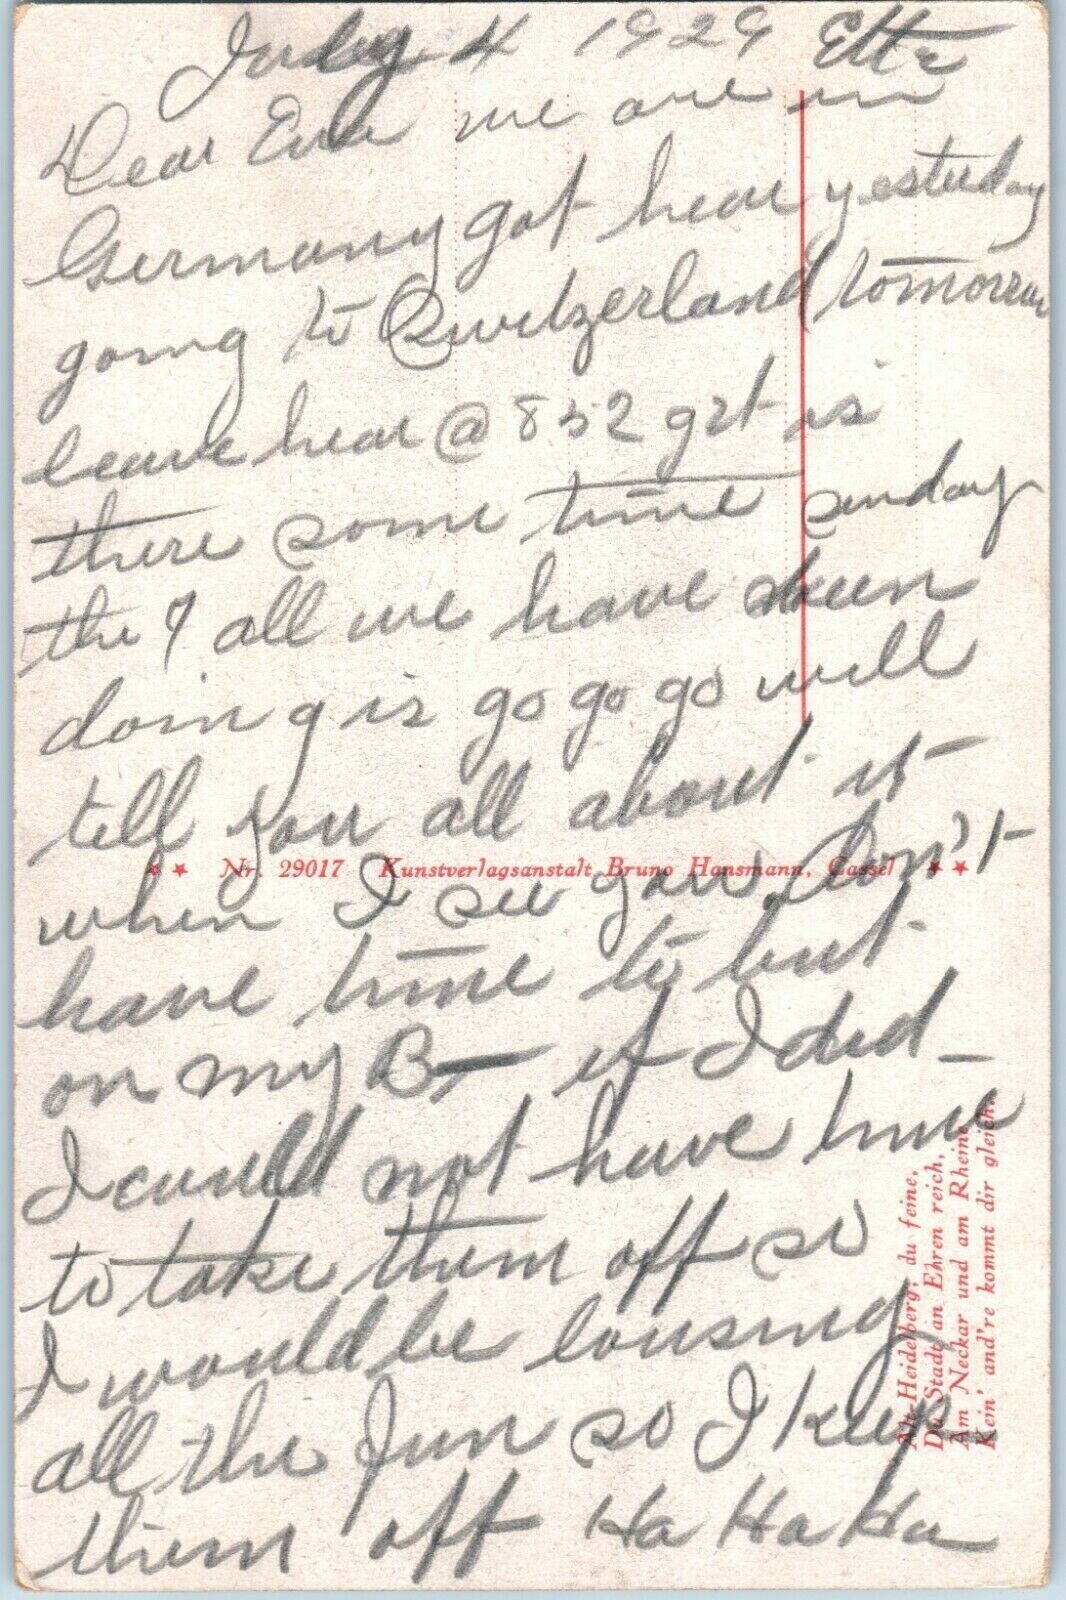 July 4 1929 Ette
Dear Eva we are in
Germany got hear yesterday
going to Switzerland tomorrow
leave hear @ 8 52 get is
there some time sunday
the 7 all we have been
doing is go go go will
tell you all about it
when I see you. Don't
have time to but
on my B— if I did—
I could not have time
to take them off so
I would be lousing
all the fun so I keep
them off Ha Ha Ha
★ ★ Nr. 29017 Kunstverlagsanstalt Bruno Hansmann, Cassel ★ ★
Alt-Heidelberg, du feine,
Du Stadt an Ehren reich,
Am Neckar und am Rheine
Kein' and're kommt dir gleich.